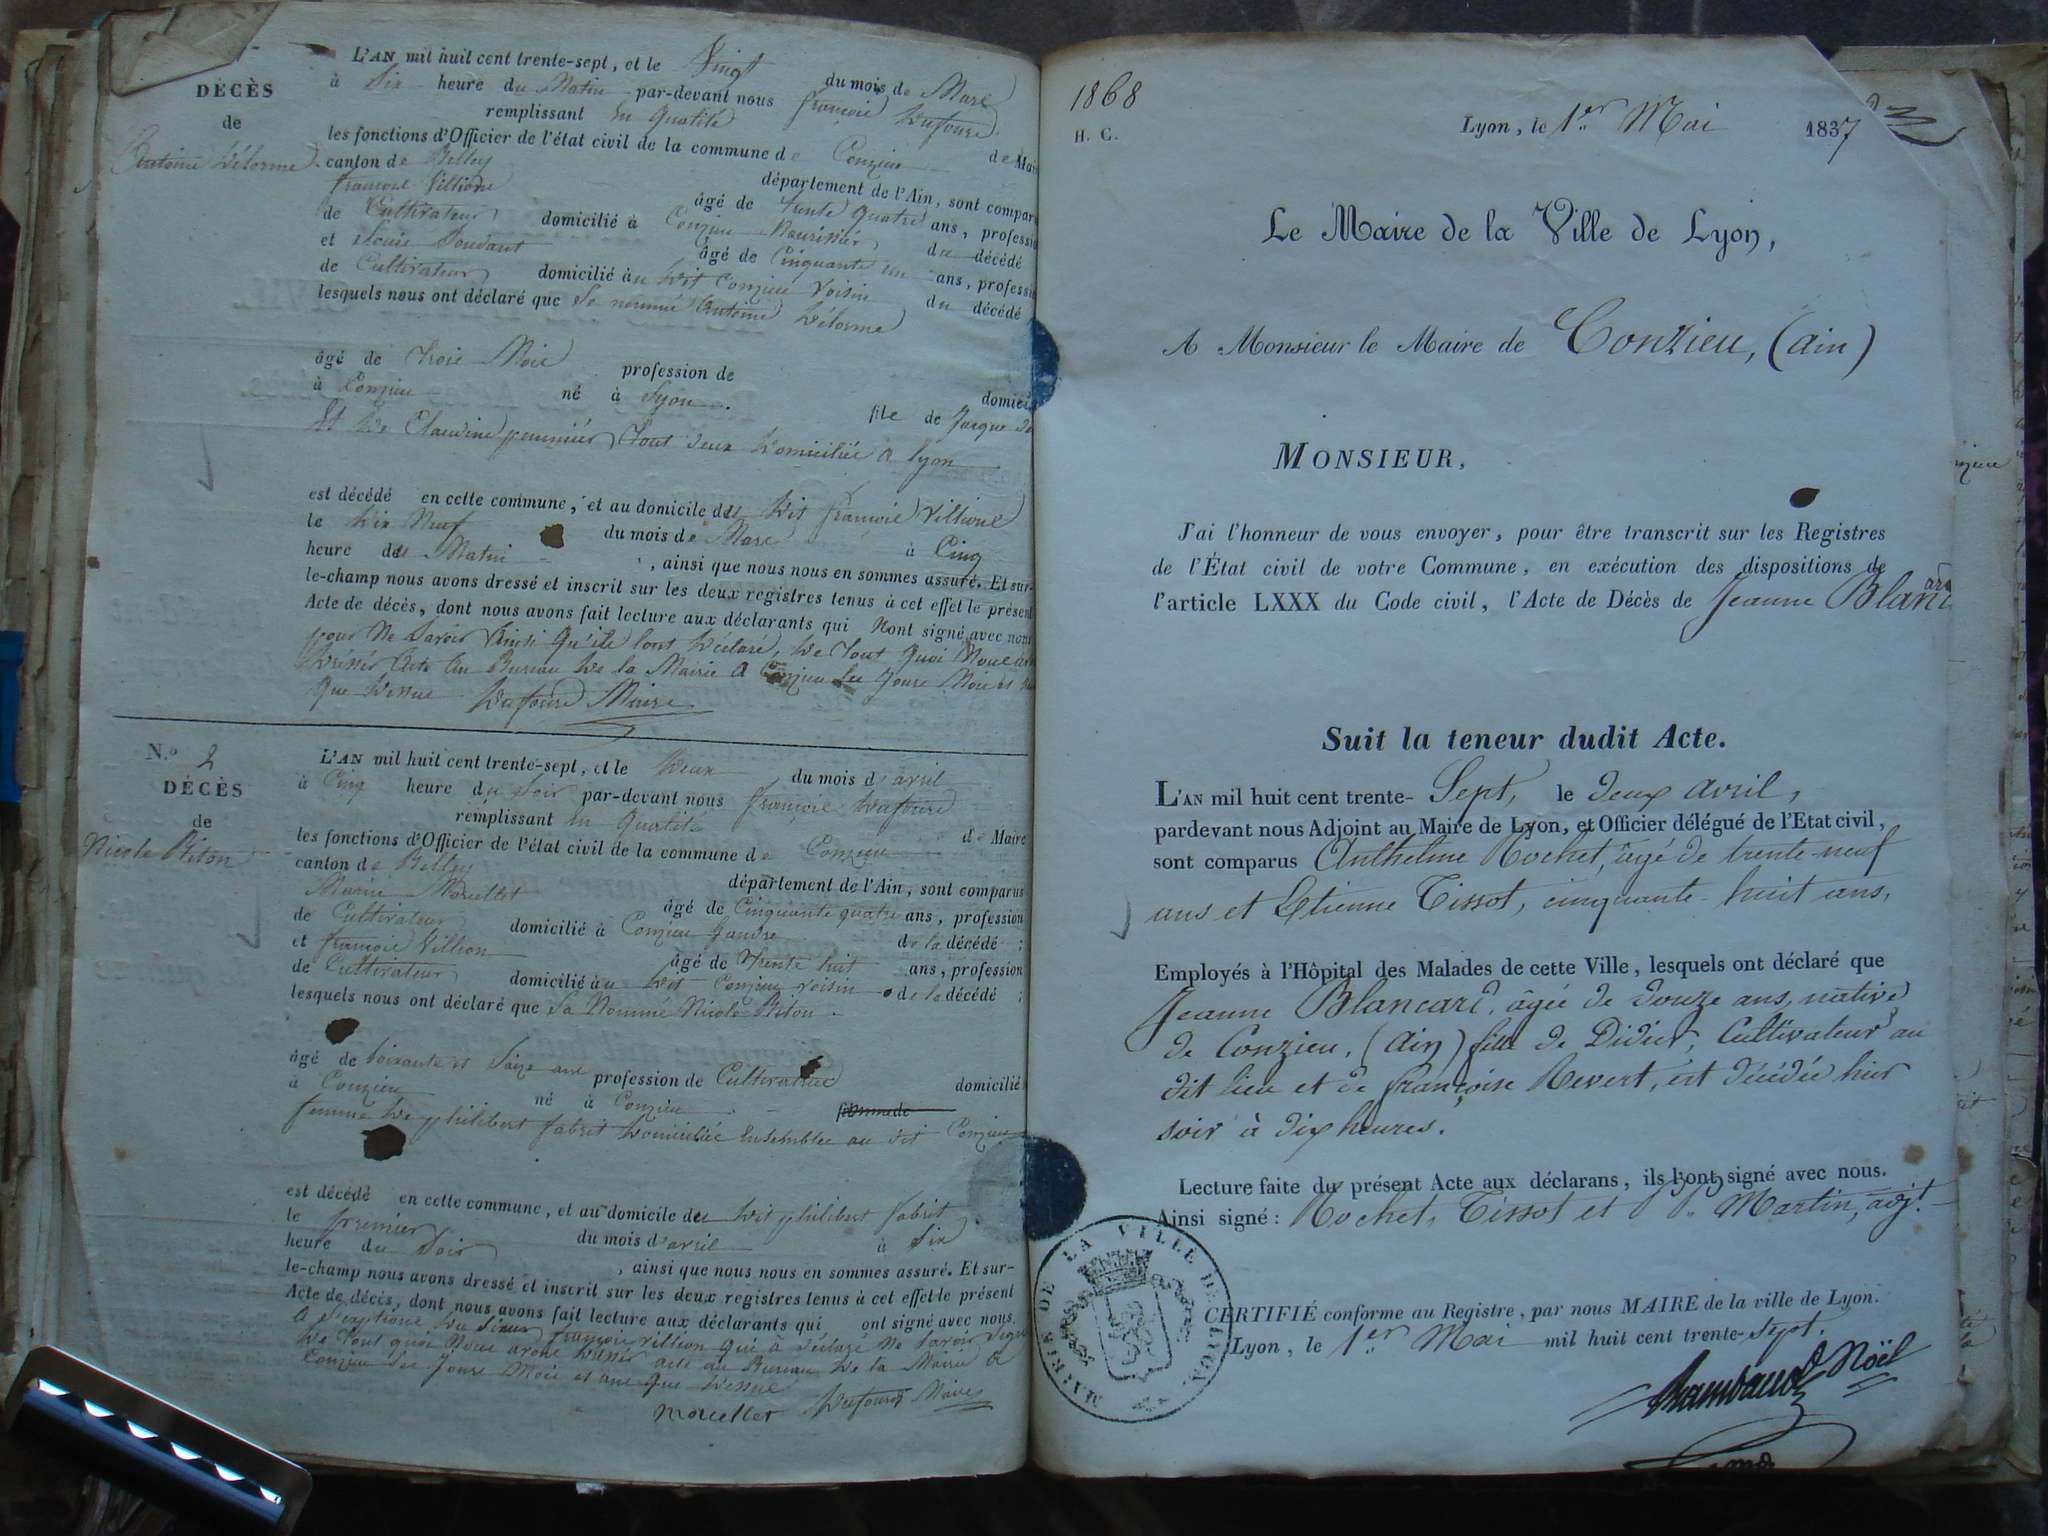 DÉCÈS
de
Antoine Délorme
L'AN mil huit cent trente-sept, et le Vingt du mois de Mars
à Six heure du Matin par-devant nous françois Dufour
remplissant en qualité de Maire
les fonctions d'Officier de l'état civil de la commune de Conzieu
canton de Belley département de l'Ain, sont comparu
françois Villion âgé de trente quatre ans, professi
de Cultivateur domicilié à Conzieu Nourissier du décédé
et Louis âgé de Cinquante un ans, professi
de Cultivateur domicilié au dit Conzieu Voisin du décédé
lesquels nous ont déclaré que Le nommé Antoine Délorme
âgé de trois Mois profession de domici
à Conzieu né à Lyon. fils de Jacque
Et De Claudine tout deux Domiciliés a lyon
est décédé en cette commune, et au domicile du Dit françois Villion
le Dix Neuf du mois de Mars à Cinq
heure du Matin, ainsi que nous nous en sommes assuré. Et sur-
le-champ nous avons dressé et inscrit sur les deux registres tenus à cet effet le présent
Acte de décès, dont nous avons fait lecture aux déclarants qui Nont signé avec nous
pour Ne Savoir Ainsi Qu'ils lont Déclaré, De tout Quoi Nous
Dressér Acte Au Bureau De la Mairie A Conzieu les Jours Mois et
Que Dessus Dufour Maire
N.° 2
DÉCÈS
de
Nicole Biton
L'AN mil huit cent trente-sept, et le Deux du mois d'avril
à Cinq heure du Soir par-devant nous françois Dufour
remplissant en qualité de Maire
les fonctions d'Officier de l'état civil de la commune de Conzieu
canton de Belley département de l'Ain, sont comparus
Marin Morcellet âgé de Cinquante quatre ans, profession
de Cultivateur domicilié à Conzieu Gendre de la décédé ;
et françois Villion âgé de trente huit ans, profession
de Cultivateur domicilié au dit Conzieu voisin de la décédé ;
lesquels nous ont déclaré que La Nommé Nicole Biton.
âgé de Soixante et Seize ans profession de Cultivatrice domicilié
à Conzieu né à Conzieu
femme De philibert fabret Domiciliée Ensemblee au dit Conzieu
est décédé en cette commune, et au domicile du Dit philibert fabret
le premier du mois d'avril à Six
heure du Soir, ainsi que nous nous en sommes assuré. Et sur-
le-champ nous avons dressé et inscrit sur les deux registres tenus à cet effet le présent
Acte de décès, dont nous avons fait lecture aux déclarants qui ont signé avec nous
A l'exption du Sieur françois Villion Qui à Déclaré Ne Savoir Signé
De tout quoi Nous avons Dressér acte au Bureau De la Mairie A
Conzieu les Jours Mois et ans Que Dessus
Morcellet Dufour Maire
1868
H. C.
Lyon, le 1er Mai 1837
Le Maire de la Ville de Lyon,
A Monsieur le Maire de Conzieu, (ain)
MONSIEUR,
J'ai l'honneur de vous envoyer, pour être transcrit sur les Registres
de l'État civil de votre Commune, en exécution des dispositions de
l'article LXXX du Code civil, l'Acte de Décès de Jeanne Blancard
Suit la teneur dudit Acte.
L'AN mil huit cent trente-Sept, le deux avril,
pardevant nous Adjoint au Maire de Lyon, et Officier délégué de l'Etat civil,
sont comparus Anthelme Rochet, âgé de trente-neuf
ans et Etienne Tissot, cinquante-huit ans,
Employés à l'Hôpital des Malades de cette Ville, lesquels ont déclaré que
Jeanne Blancard, âgée de douze ans, native
de Conzieu, (ain) fille de Didier, Cultivateur au
dit lieu et de françoise Revert, est décédée hier
soir à dix heures.
Lecture faite du présent Acte aux déclarans, ils l'ont signé avec nous.
Ainsi signé : Rochet, Tissot et Martin, adj.t
CERTIFIÉ conforme au Registre, par nous MAIRE de la ville de Lyon.
Lyon, le 1er Mai mil huit cent trente-sept.
MAIRIE DE LA VILLE DE LYON.
Rambaud Noël